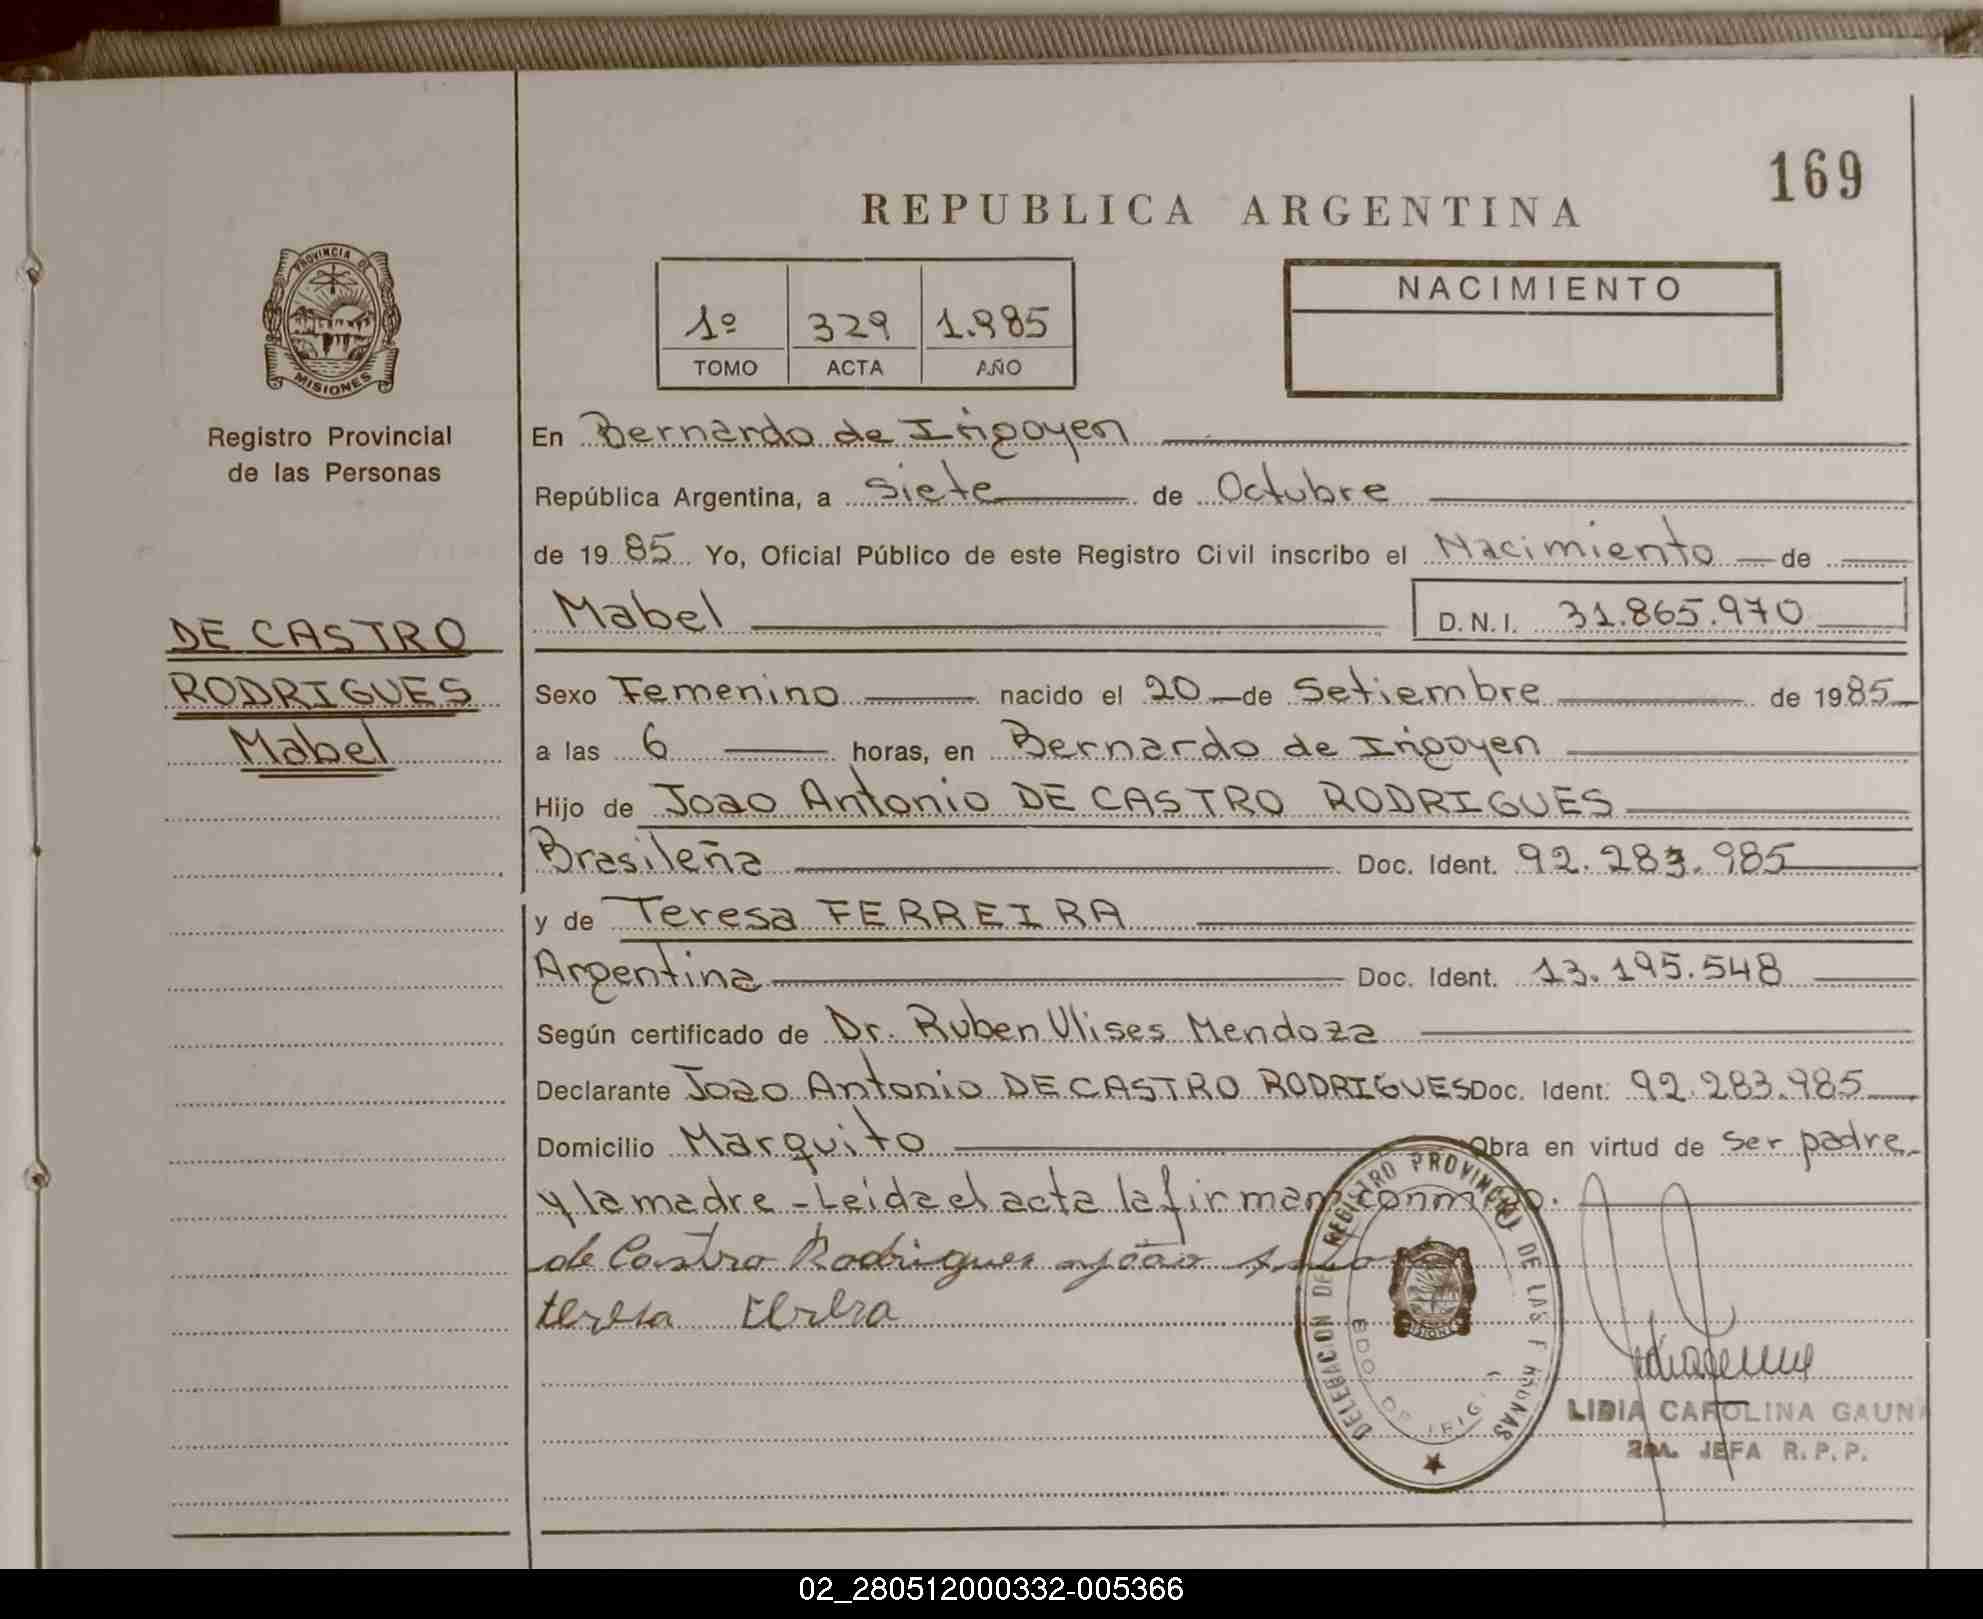 169
REPUBLICA ARGENTINA
PROVINCIA DE
MISIONES
Registro Provincial
de las Personas
1º 329 1.985
TOMO ACTA AÑO
NACIMIENTO
En Bernardo de Irigoyen
República Argentina, a siete de Octubre
de 1985 Yo, Oficial Público de este Registro Civil inscribo el Nacimiento de
Mabel D.N.I. 31.865.970
DE CASTRO
RODRIGUES
Mabel
Sexo Femenino nacido el 20 de Setiembre de 1985
a las 6 horas, en Bernardo de Irigoyen
Hijo de Joao Antonio DE CASTRO RODRIGUES
Brasileña Doc. Ident. 92.283.985
y de Teresa FERREIRA
Argentina Doc. Ident. 13.195.548
Según certificado de Dr. Ruben Ulises Mendoza
Declarante Joao Antonio DE CASTRO RODRIGUES Doc. Ident. 92.283.985
Domicilio Marquito Obra en virtud de ser padre
y la madre - Leida el acta la firman conmigo.
de Castro Rodrigues João
teresa
DELEGACION DEL REGISTRO PROVINCIAL DE LAS
MISIONES
LIDIA CAROLINA GAUN
2da. JEFA R.P.P.
02_280512000332-005366